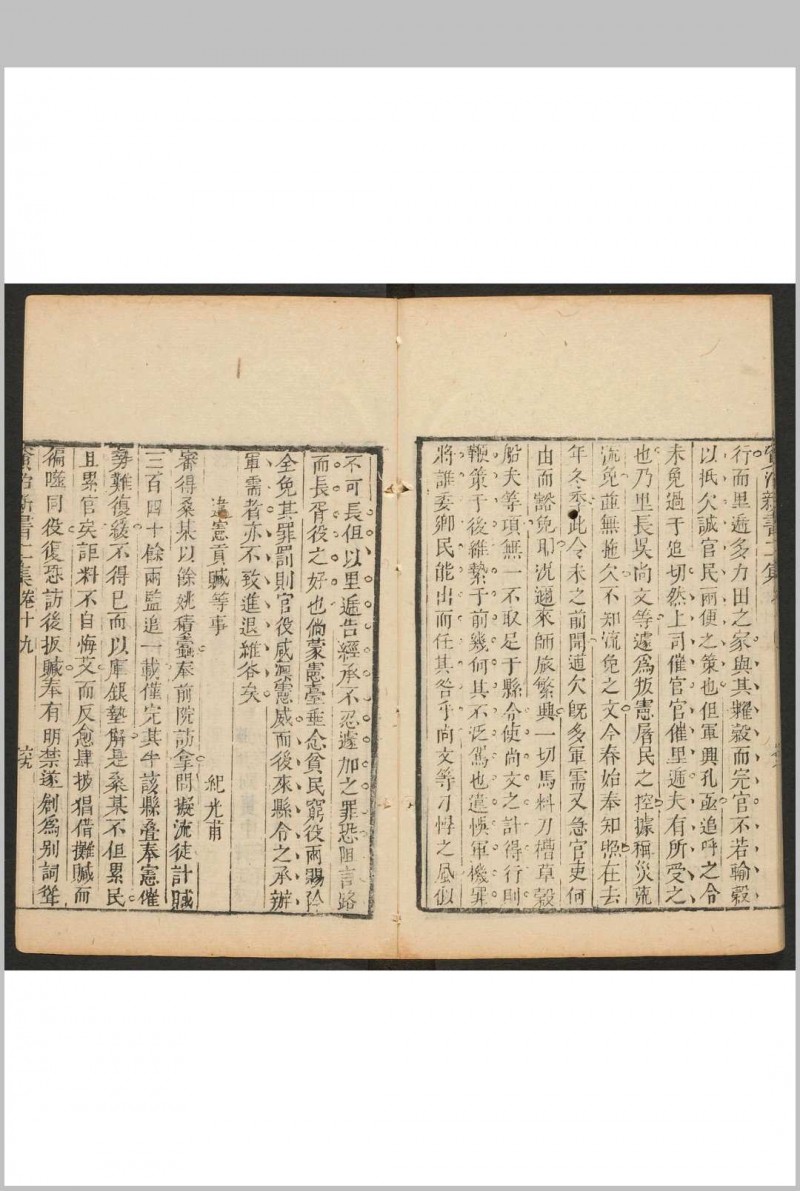 行而里遞多力田之家與其糶穀而完官不若輸穀
以抵欠誠官民兩便之策也但軍興孔亟追呼之令
未免過于追切然上司催官官催里遞夫有所受之
也乃里長吳尚文等遽爲叛憲屠民之控據稱災荒
流免並無拖欠不知流免之文今春始奉知照在去
年冬季此令未之前聞逋欠旣多軍需又急官吏何
由而豁免耶况邇來師旅繁興一切馬料刀槽草穀
船夫等項無一不取足于縣令使尚文之計得行則
鞭策于後維縶于前幾何其不泛駕也違悞軍機罪
將誰委鄉民能出而任其咎乎尚文等刁悍之風似
不可長但以里遞告經承不忍遽加之罪恐阻言路
而長胥役之奸也倘蒙憲臺垂念貧民窮役兩賜矜
全免其罪罰則官役咸凛憲威而後來縣令之承辦
軍需者亦不致進退維谷矣
違憲貢贓等事
紀光甫
審得桑某以餘姚積蠹奉前院訪拿問擬流徒計贓
三百四十餘兩監追一載僅完其半該縣叠奉憲催
勢難復緩不得已而以庫銀墊解是桑某不但累民
且累官矣詎料不自悔艾而反愈肆披猖借攤贓而
徧噬同役復恐訪後扳贓奉有明禁遂創爲別詞聳
資治新書二集 卷十九